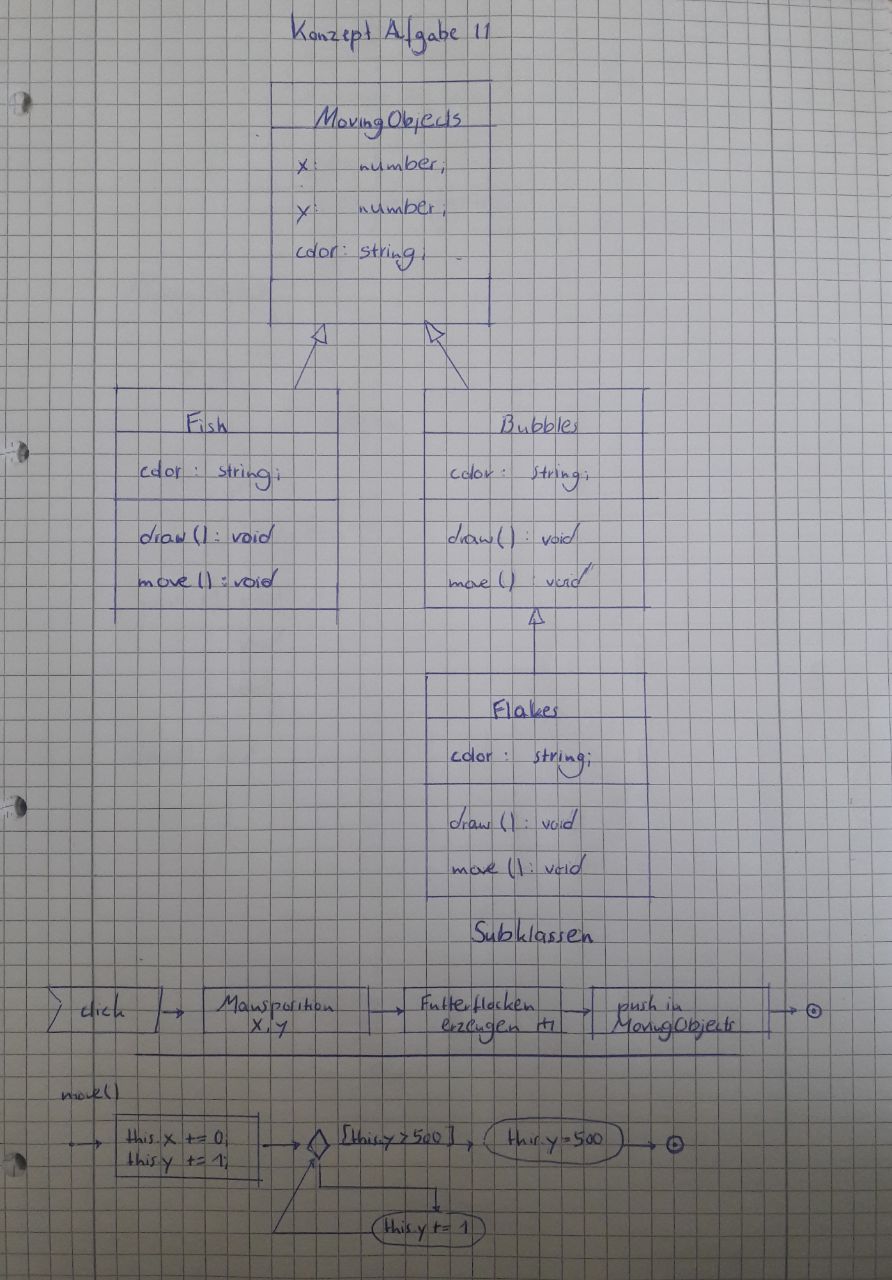 Konzept Afgabe 11
MovingObjects
x: number;
y: number;
color: string;
Fish
color: string;
draw(): void
move(): void
Bubbles
color: string;
draw(): void
move(): void
Flakes
color: string;
draw(): void
move(): void
Subklassen
click
Mausposition
x, y
Futterflocken
erzeugen
push in
MovingObjects
move()
this.x += 0;
this.y += 1;
[this.y > 500]
this.y = 500
this.y += 1